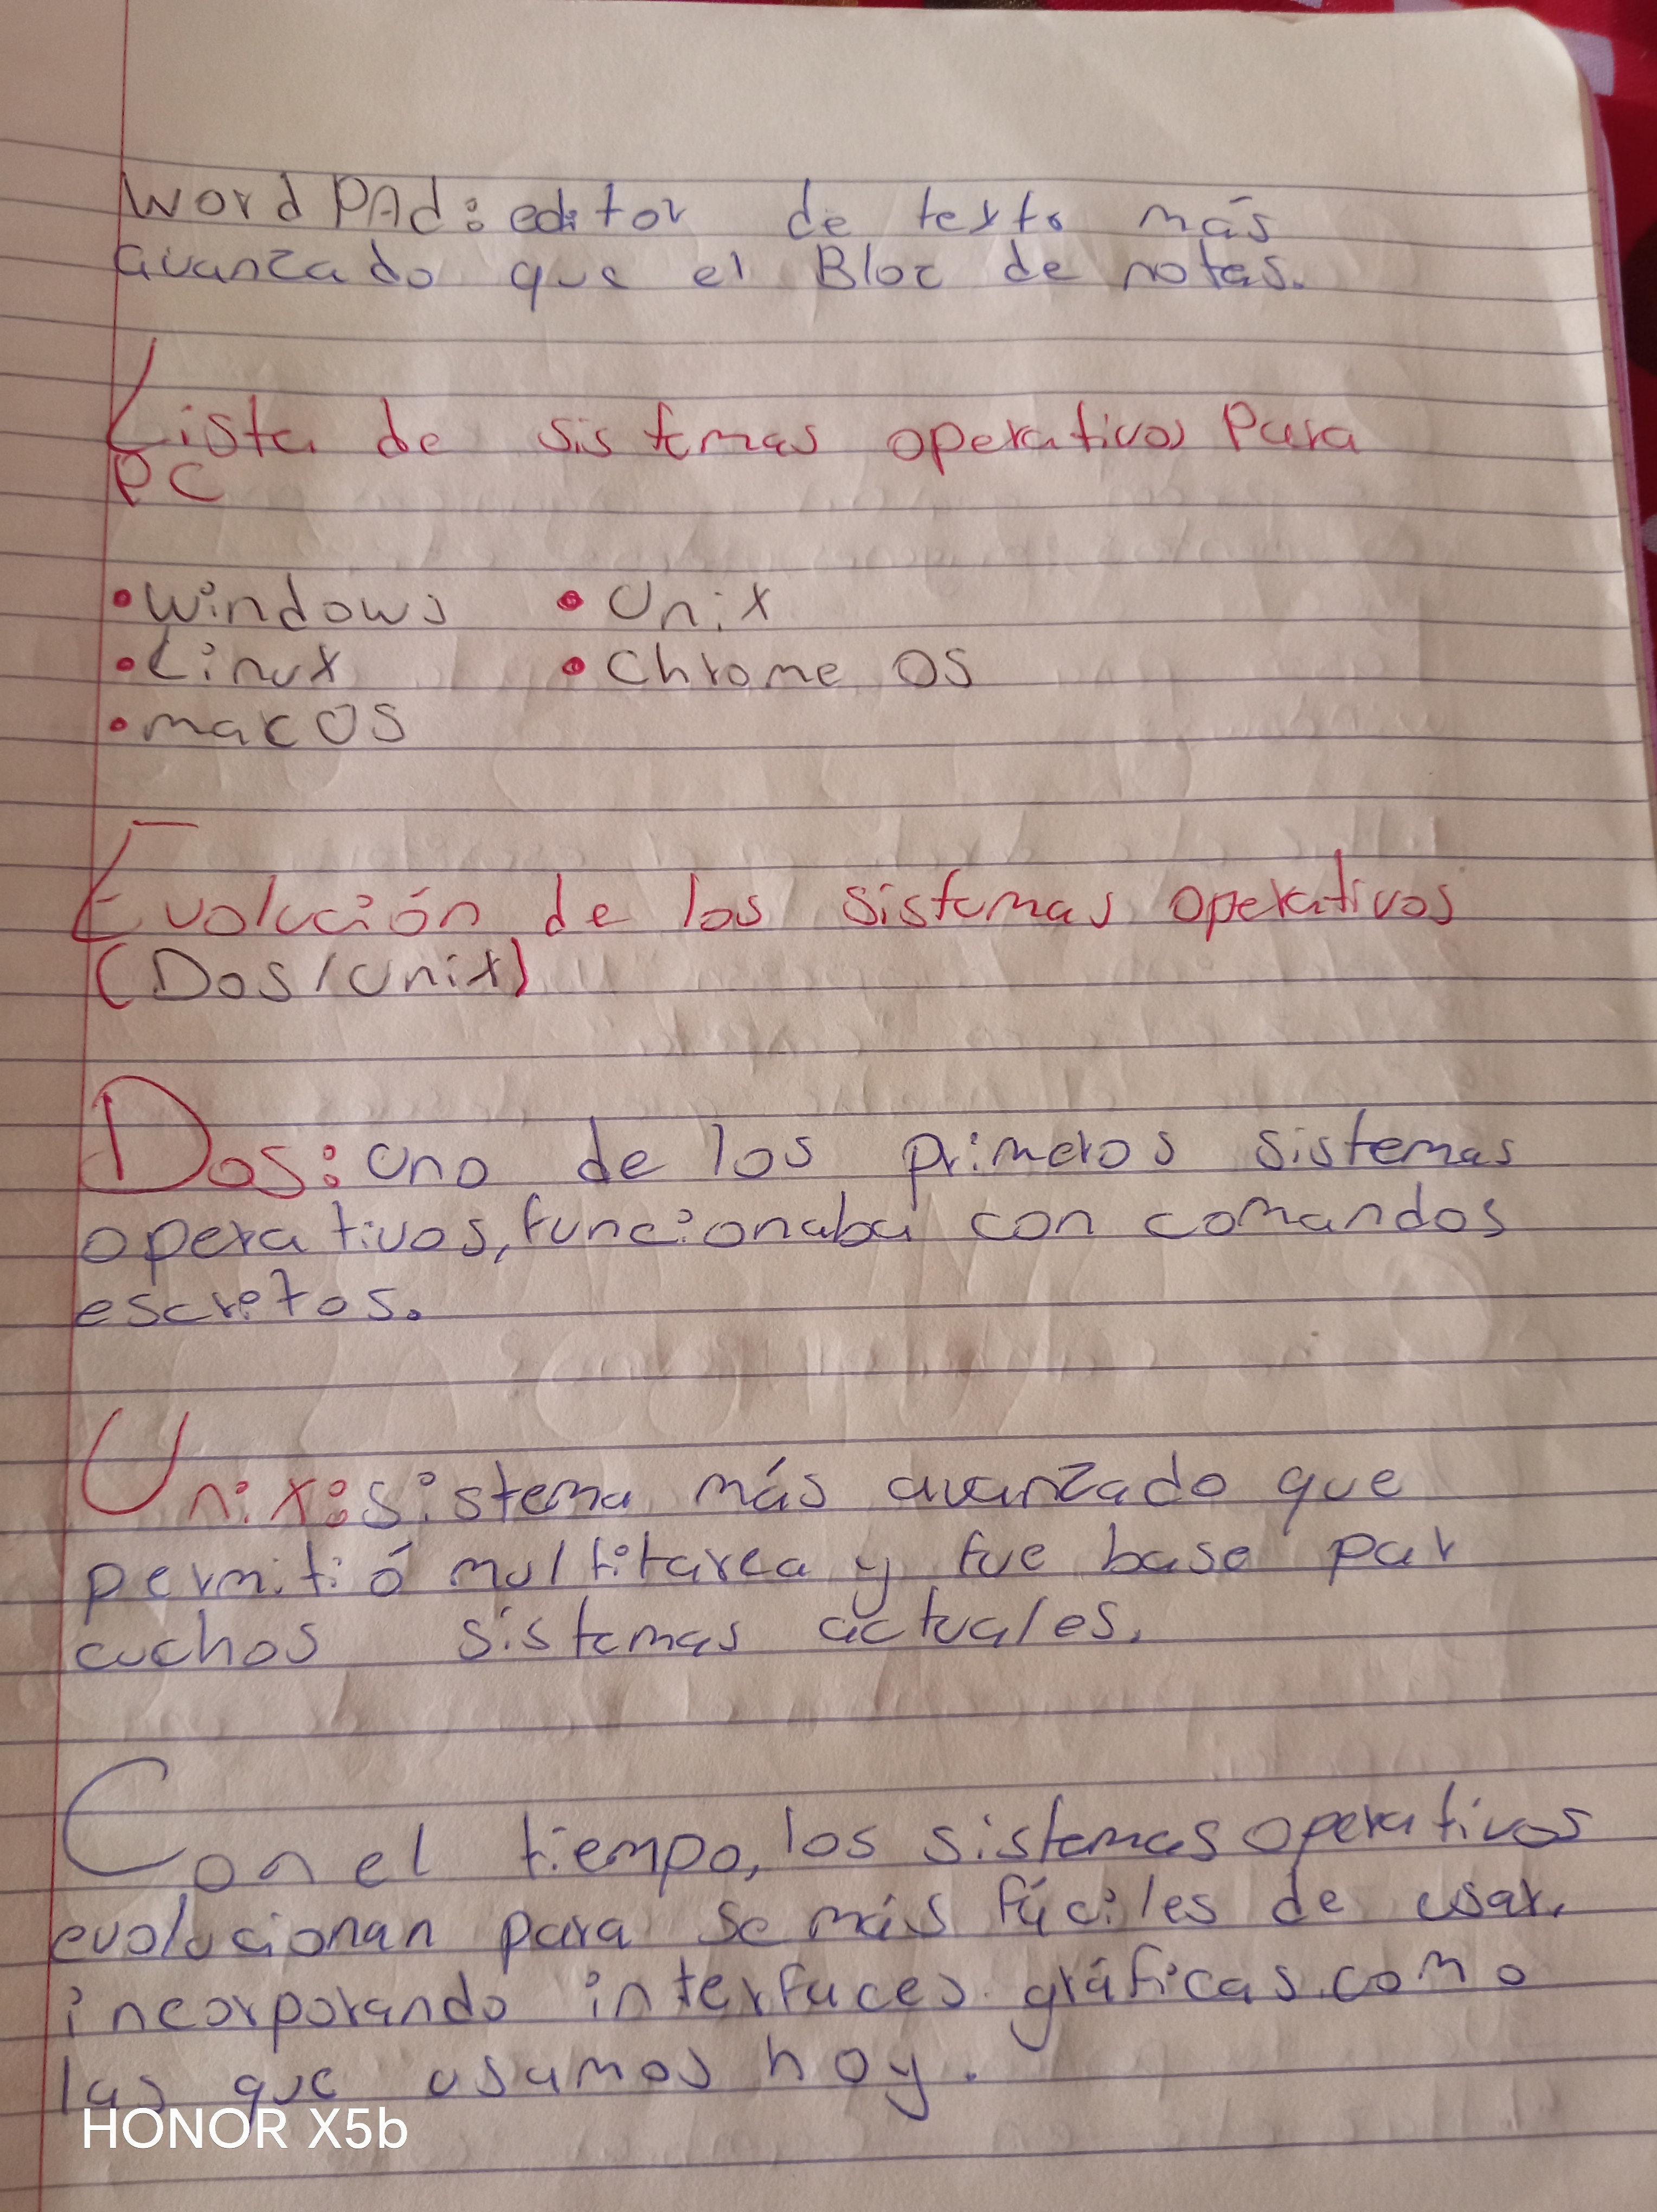 WordPAd: editor de texto más
avanzado que el Bloc de notas.
Lista de sistemas operativos Para
PC
• Windows • Unix
• Linux • Chrome OS
• macOS
Evolución de los sistemas operativos
(Dos/Unix)
Dos: uno de los primeros sistemas
operativos, funcionaba con comandos
escritos.
Unix: sistema más avanzado que
permitió multitarea y fue base par
auchos sistemas actuales.
Con el tiempo, los sistemas operativos
evolucionan para se más fáciles de usar.
incorporando interfaces gráficas como
las que usamos hoy.
HONOR X5b